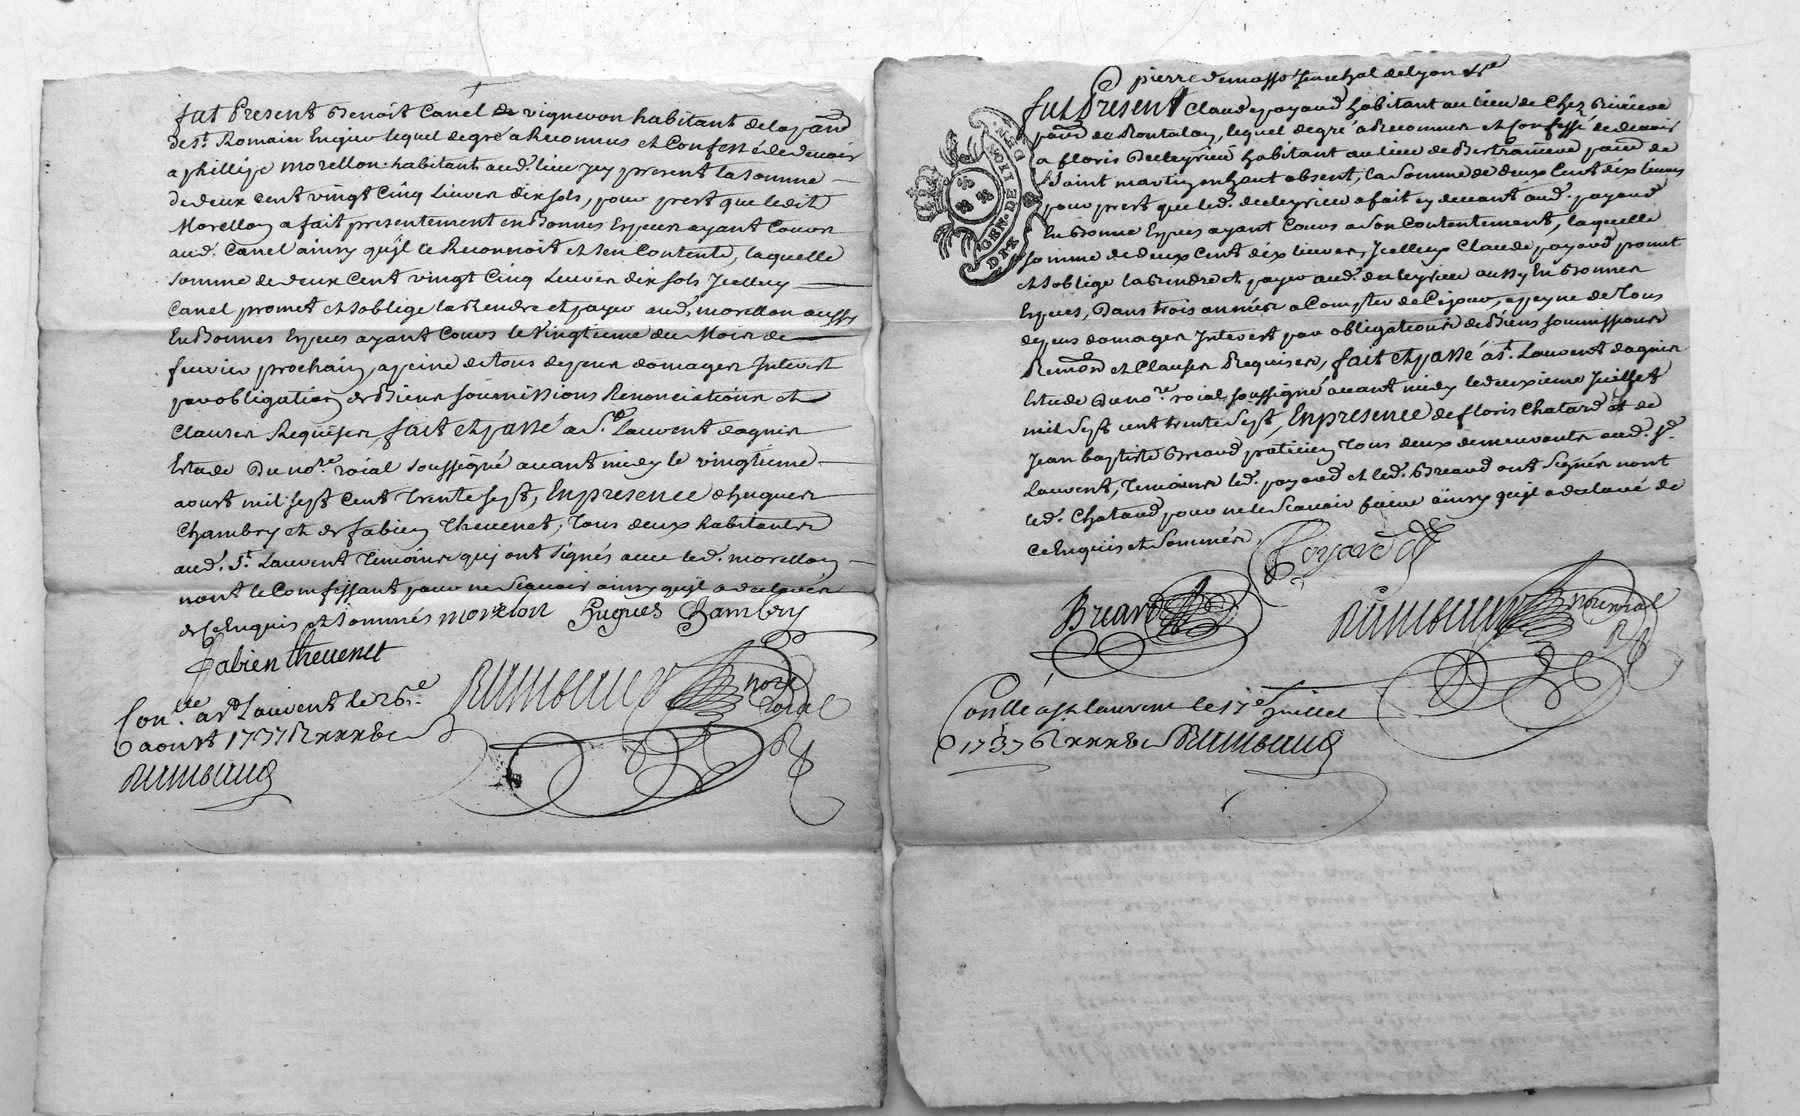 fut Present Benoit Canel vigneron habitant de la parr
De st. Romain En jew lequel de gré a Reconnus et Confessé de devoir
a phillipe morellon habitant aud. lieu jcy present la somme
De deux cent vingt Cinq Livres dix sols, pour prest que ledit
Morellon a fait presentement en Bonnes Especes ayant Cours
aud. Canel ainsy qu'jl le Reconnoit et sen Contente, laquelle
somme de deux Cent vingt Cinq Livres dix sols Jcelluy
Canel promet et soblige la Rendre et payer aud. morellon aussy
En Bonnes Especes ayant Cours le vingtieme du Mois de
fevrier prochain, a peine de tous depens domages Interest
par obligation de Biens soumissions Renonciations et
Clauses Requises, fait et passé a St. Laurent dagnis
Etude Du nore. roial soussigné avant midy le vingtieme
aoust mil sept Cent trente sept, En presence dhugues
Chambry et de fabien Thevenet, Tous deux habitants
aud. St. Laurent Temoins quj ont signés avec led. morellon
nont le Confessant pour ne Scavoir ainsy qujl a declaré
de ce Enquis et sommés morelon Hugues Chambry
fabien thevenet
nore roial
Con.lle a st Laurent le 26e
aoust 1737 R
pierre demasso senechal de lyon &c
fut Present Claude payard habitant au lieu de Chez
parr de Rontalon, lequel de gré a Reconnus et Confessé de devoir
a floris Deleyrieu habitant au lieu de parr de
Saint martin en haut absent, la Somme de deux Cent dix livres
pour prest que led. deleyrieu a fait cy devant aud. payard
En Bonne Especes ayant Cours a son Contentement, laquelle
somme de deux Cent dix livres, Jcelluy Claude payard promet
et soblige la Rendre et payer aud. deleyrieu aussy En Bonnes
Especes, Dans trois années a Compter de Cejour, a peyne de Tous
depens domages Interest par obligations de Biens soumissions
Renon et Clauses Requises, fait et passé a st. Laurent dagnis
Etude Du nore. roial soussigné avant midy le deuxieme Juillet
mil Sept cent trente Sept, En presence de floris Chatard et de
Jean baptiste Breard praticien Tous deux demeurants aud. St.
Laurent, Temoins led. payard et led. Breard ont Signés nont
led. Chatard pour ne le Scavoir faire ainsy qujl a declaré de
Ce Enquis et Sommés
Poyard
Breard
Con.lle a st laurent le 17e juillet
1737 R
GEN. DE LION